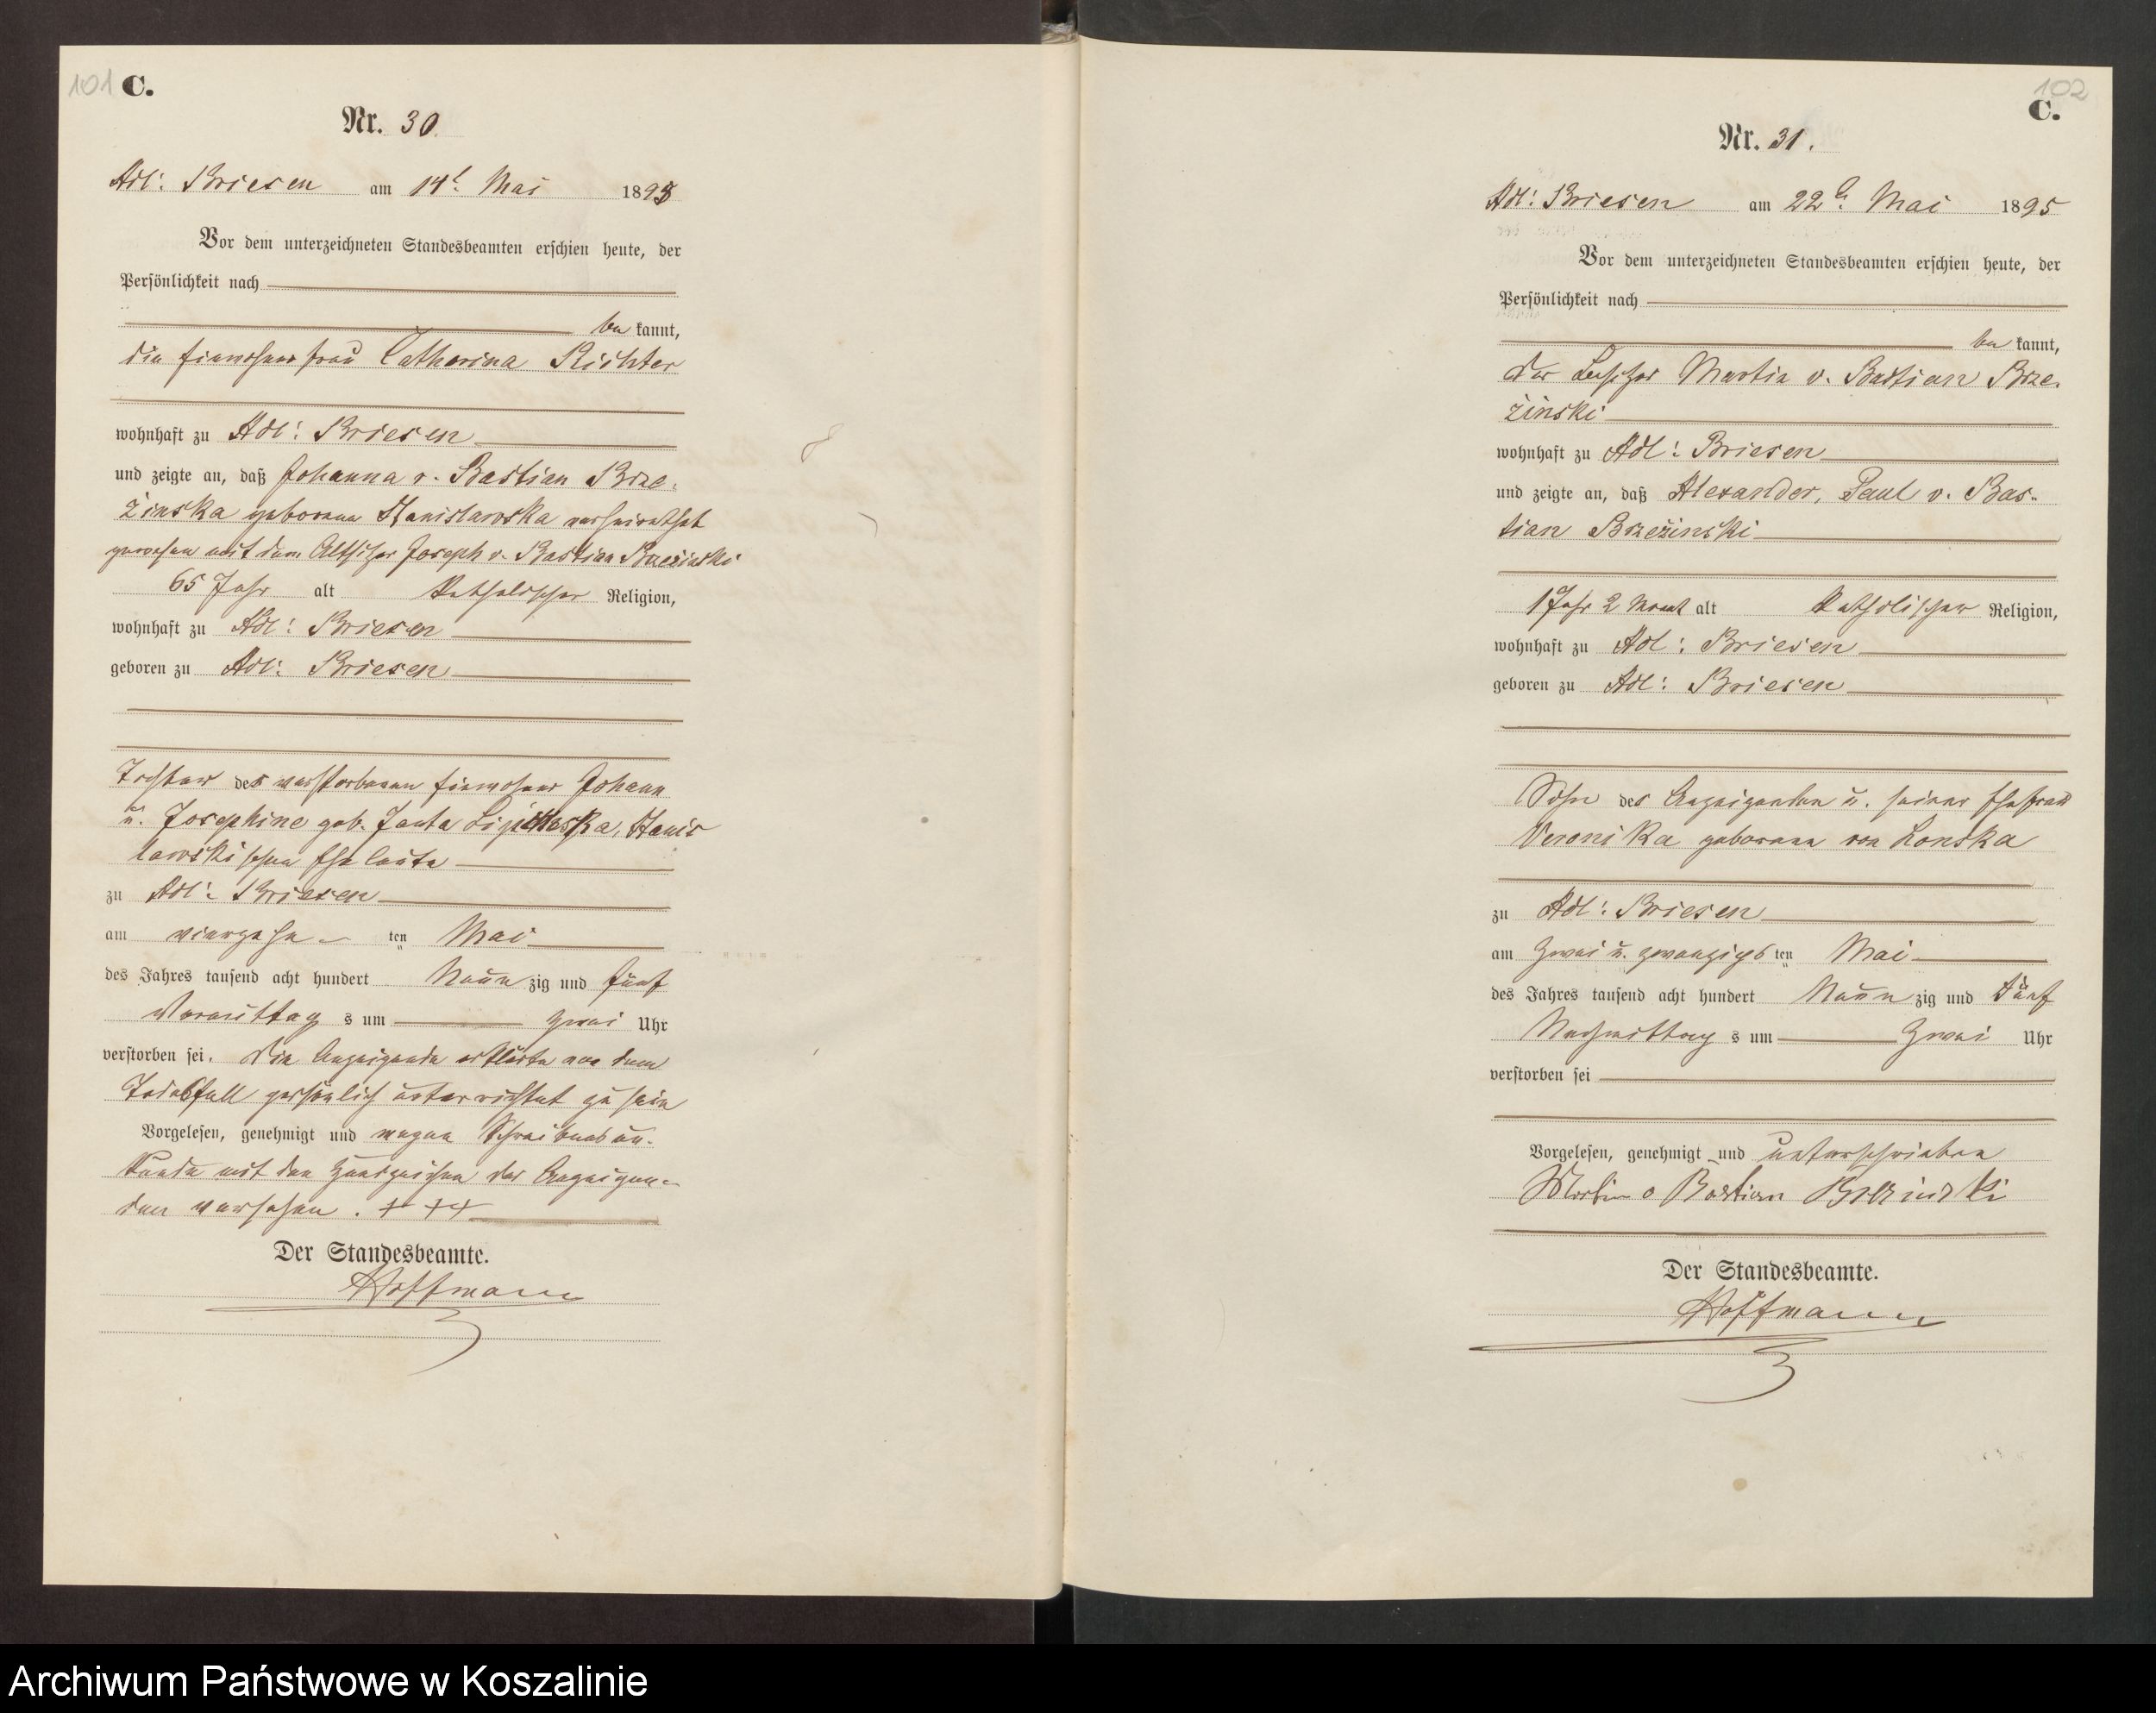 101 C.
Nr. 30.
Adl: Briesen am 14t. Mai 1895
Vor dem unterzeichneten Standesbeamten erschien heute, der
Persönlichkeit nach
be kannt,
die Einwohnerfrau Catharina Richter
wohnhaft zu Adl: Briesen
und zeigte an, daß Johanna v. Bastian Brze-
zinska geborene Stanislawska verheirathet
gewesen mit dem Altsitzer Joseph v. Bastian Brzezinski
65 Jahr alt katholischer Religion,
wohnhaft zu Adl: Briesen
geboren zu Adl: Briesen
Tochter des verstorbenen Einwohner Johann
u. Josephine geb. Janta Stanis
lawskischen Eheleute
zu Adl: Briesen
am vierzehn ten Mai
des Jahres tausend acht hundert Neun zig und fünf
Vormittag s um zwei Uhr
verstorben sei. Die Anzeigende erklärte von dem
Todesfall persönlich unterrichtet zu sein
Vorgelesen, genehmigt und wegen Schreibensun-
kunde mit den Handzeichen der Anzeigen-
den versehen. + + +
Der Standesbeamte.
Hoffmann
102
C.
Nr. 31.
Adl: Briesen am 22t. Mai 1895
Vor dem unterzeichneten Standesbeamten erschien heute, der
Persönlichkeit nach
be kannt,
der Besitzer Martin v. Bastian Brze-
zinski
wohnhaft zu Adl: Briesen
und zeigte an, daß Alexander, Paul v. Bas-
tian Brzezinski
1 Jahr 2 Monat alt katholischer Religion,
wohnhaft zu Adl: Briesen
geboren zu Adl: Briesen
Sohn des Anzeigenden u. seiner Ehefrau
Veronika geborene von Lonska
zu Adl: Briesen
am Zwei u. zwanzigs ten Mai
des Jahres tausend acht hundert Neun zig und Fünf
Nachmittag s um Zwei Uhr
verstorben sei
Vorgelesen, genehmigt und unterschrieben
Martin v Bastian Brzezinski
Der Standesbeamte.
Hoffmann
Archiwum Państwowe w Koszalinie